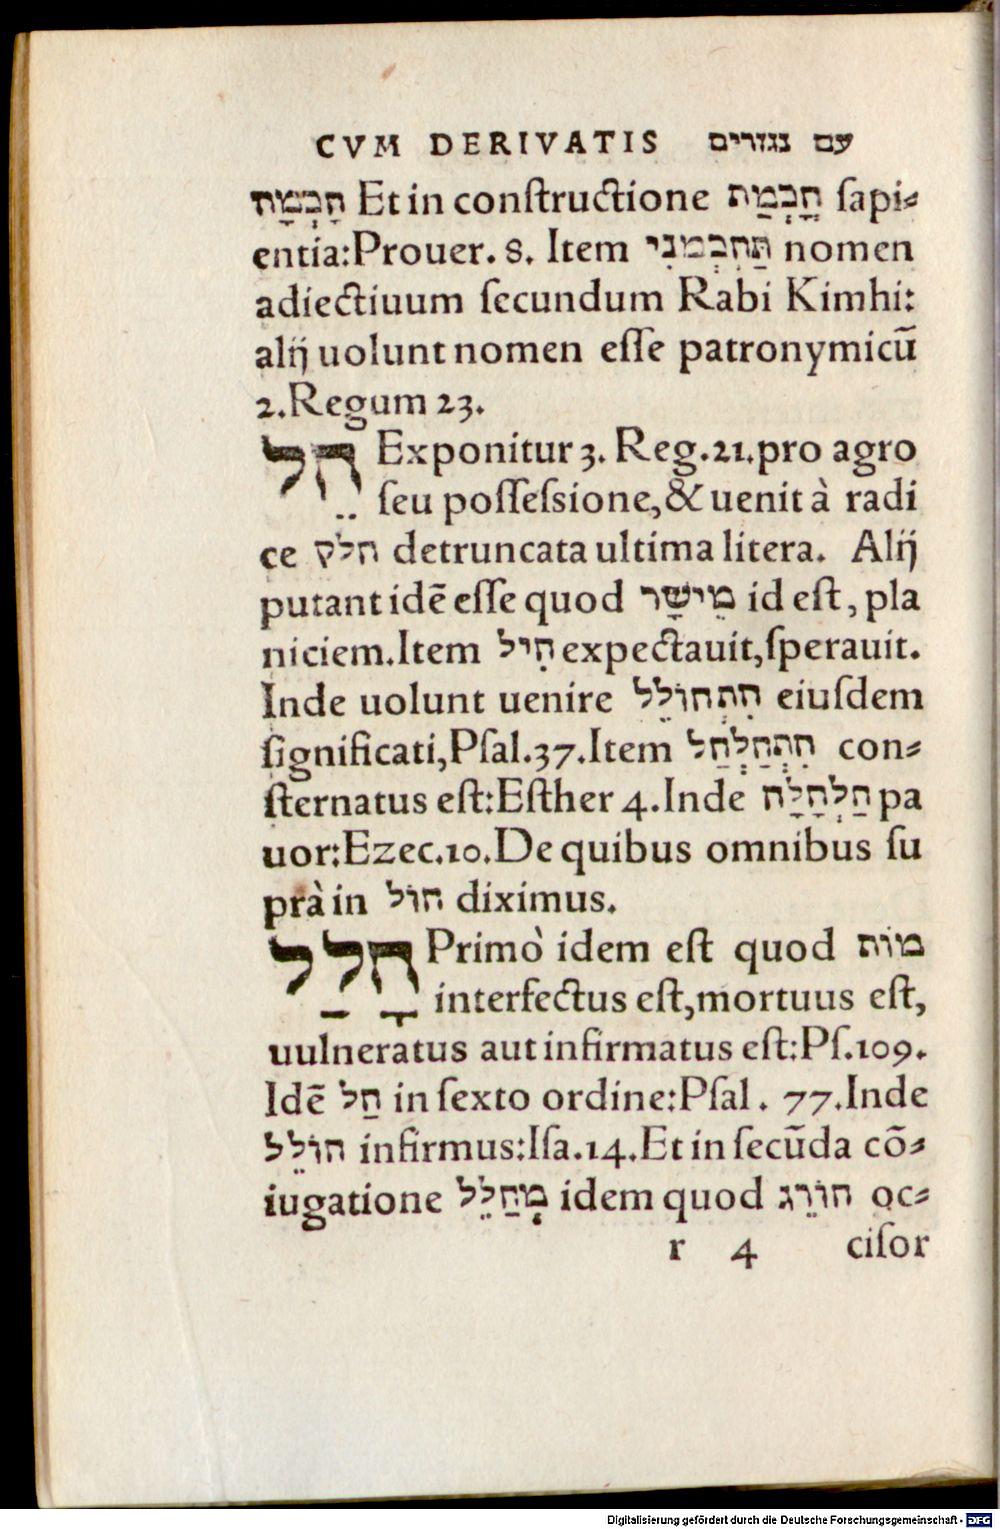 CVM DERIVATIS עם נגזרים
חָכְמָה Et in constructione חָכְמַת sapi⸗
entia:Prouer. 8. Item תַּחְכְּמֹנִי nomen
adiectiuum secundum Rabi Kimhi:
alij uolunt nomen esse patronymicũ
2.Regum 23.
חֵל Exponitur 3. Reg.21.pro agro
seu possessione,& uenit à radi
ce חלק detruncata ultima litera. Alij
putant idē esse quod מֵישָׁר id est, pla
niciem.Item חִיל expectauit,sperauit.
Inde uolunt uenire הִתְחוֹלֵל eiusdem
significati,Psal.37.Item הִתְחַלְחַל con⸗
sternatus est:Esther 4.Inde חַלְחָלָה pa
uor:Ezec.10.De quibus omnibus su
prà in חוֹל diximus.
חָלַל Primò idem est quod מוֹת
interfectus est,mortuus est,
uulneratus aut infirmatus est:Ps.109.
Idē חַל in sexto ordine:Psal. 77.Inde
חוֹלֵל infirmus:Isa.14.Et in secũda cō⸗
iugatione מְחַלֵל idem quod הוֹרֵג oc⸗
r 4 cisor
Digitalisierung gefördert durch die Deutsche Forschungsgemeinschaft - DFG